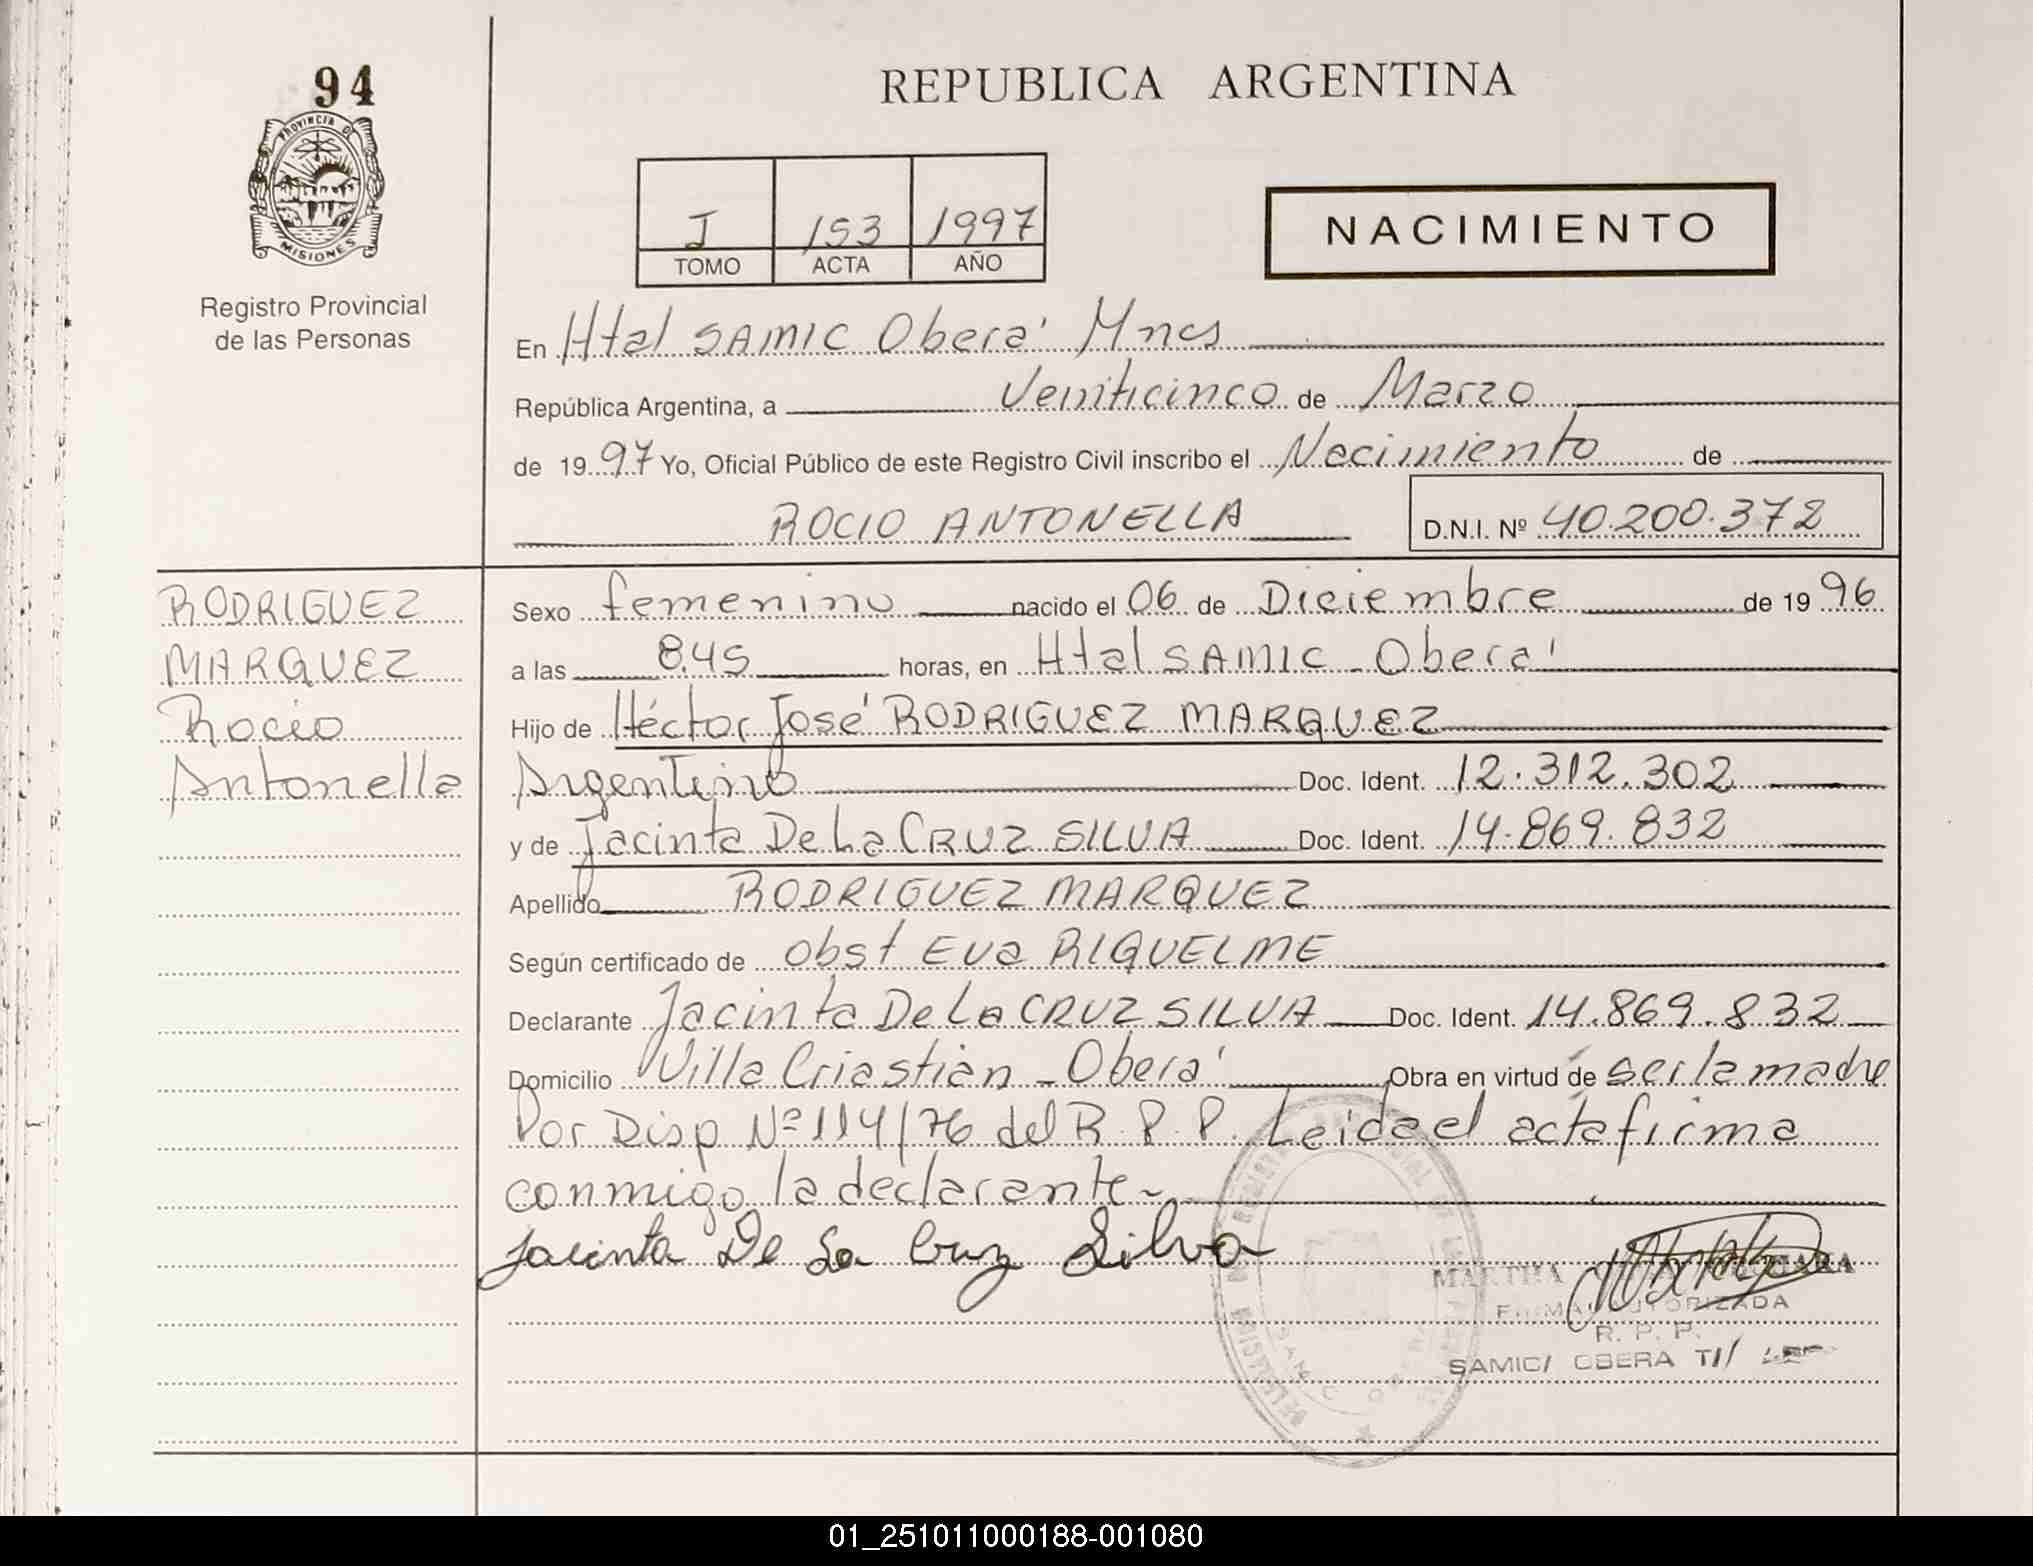 94
PROVINCIA DE
MISIONES
Registro Provincial
de las Personas
REPUBLICA ARGENTINA
I 153 1997
TOMO ACTA AÑO
NACIMIENTO
En Htal SAMIC Oberá Mnes
República Argentina, a Veinticinco de Marzo
de 1997 Yo, Oficial Público de este Registro Civil inscribo el Nacimiento de
ROCIO ANTONELLA D.N.I. Nº 40.200.372
RODRIGUEZ
MARQUEZ
Rocio
Antonella
Sexo femenino nacido el 06 de Diciembre de 1996
a las 8.45 horas, en Htal SAMIC - Oberá
Hijo de Héctor José RODRIGUEZ MARQUEZ
Argentino Doc. Ident. 12.312.302
y de Jacinta De La CRUZ SILVA Doc. Ident. 14.869.832
Apellido RODRIGUEZ MARQUEZ
Según certificado de Obst Eva RIQUELME
Declarante Jacinta De La CRUZ SILVA Doc. Ident. 14.869.832
Domicilio Villa Criastián - Oberá Obra en virtud de ser la madre
Por Disp Nº 114/76 del R.P.P. Leida el acta firma
conmigo la declarante-
Jacinta De La Cruz Silva
MARTHA
FIRMA AUTORIZADA
R. P. P.
SAMIC/ OBERA
01_251011000188-001080